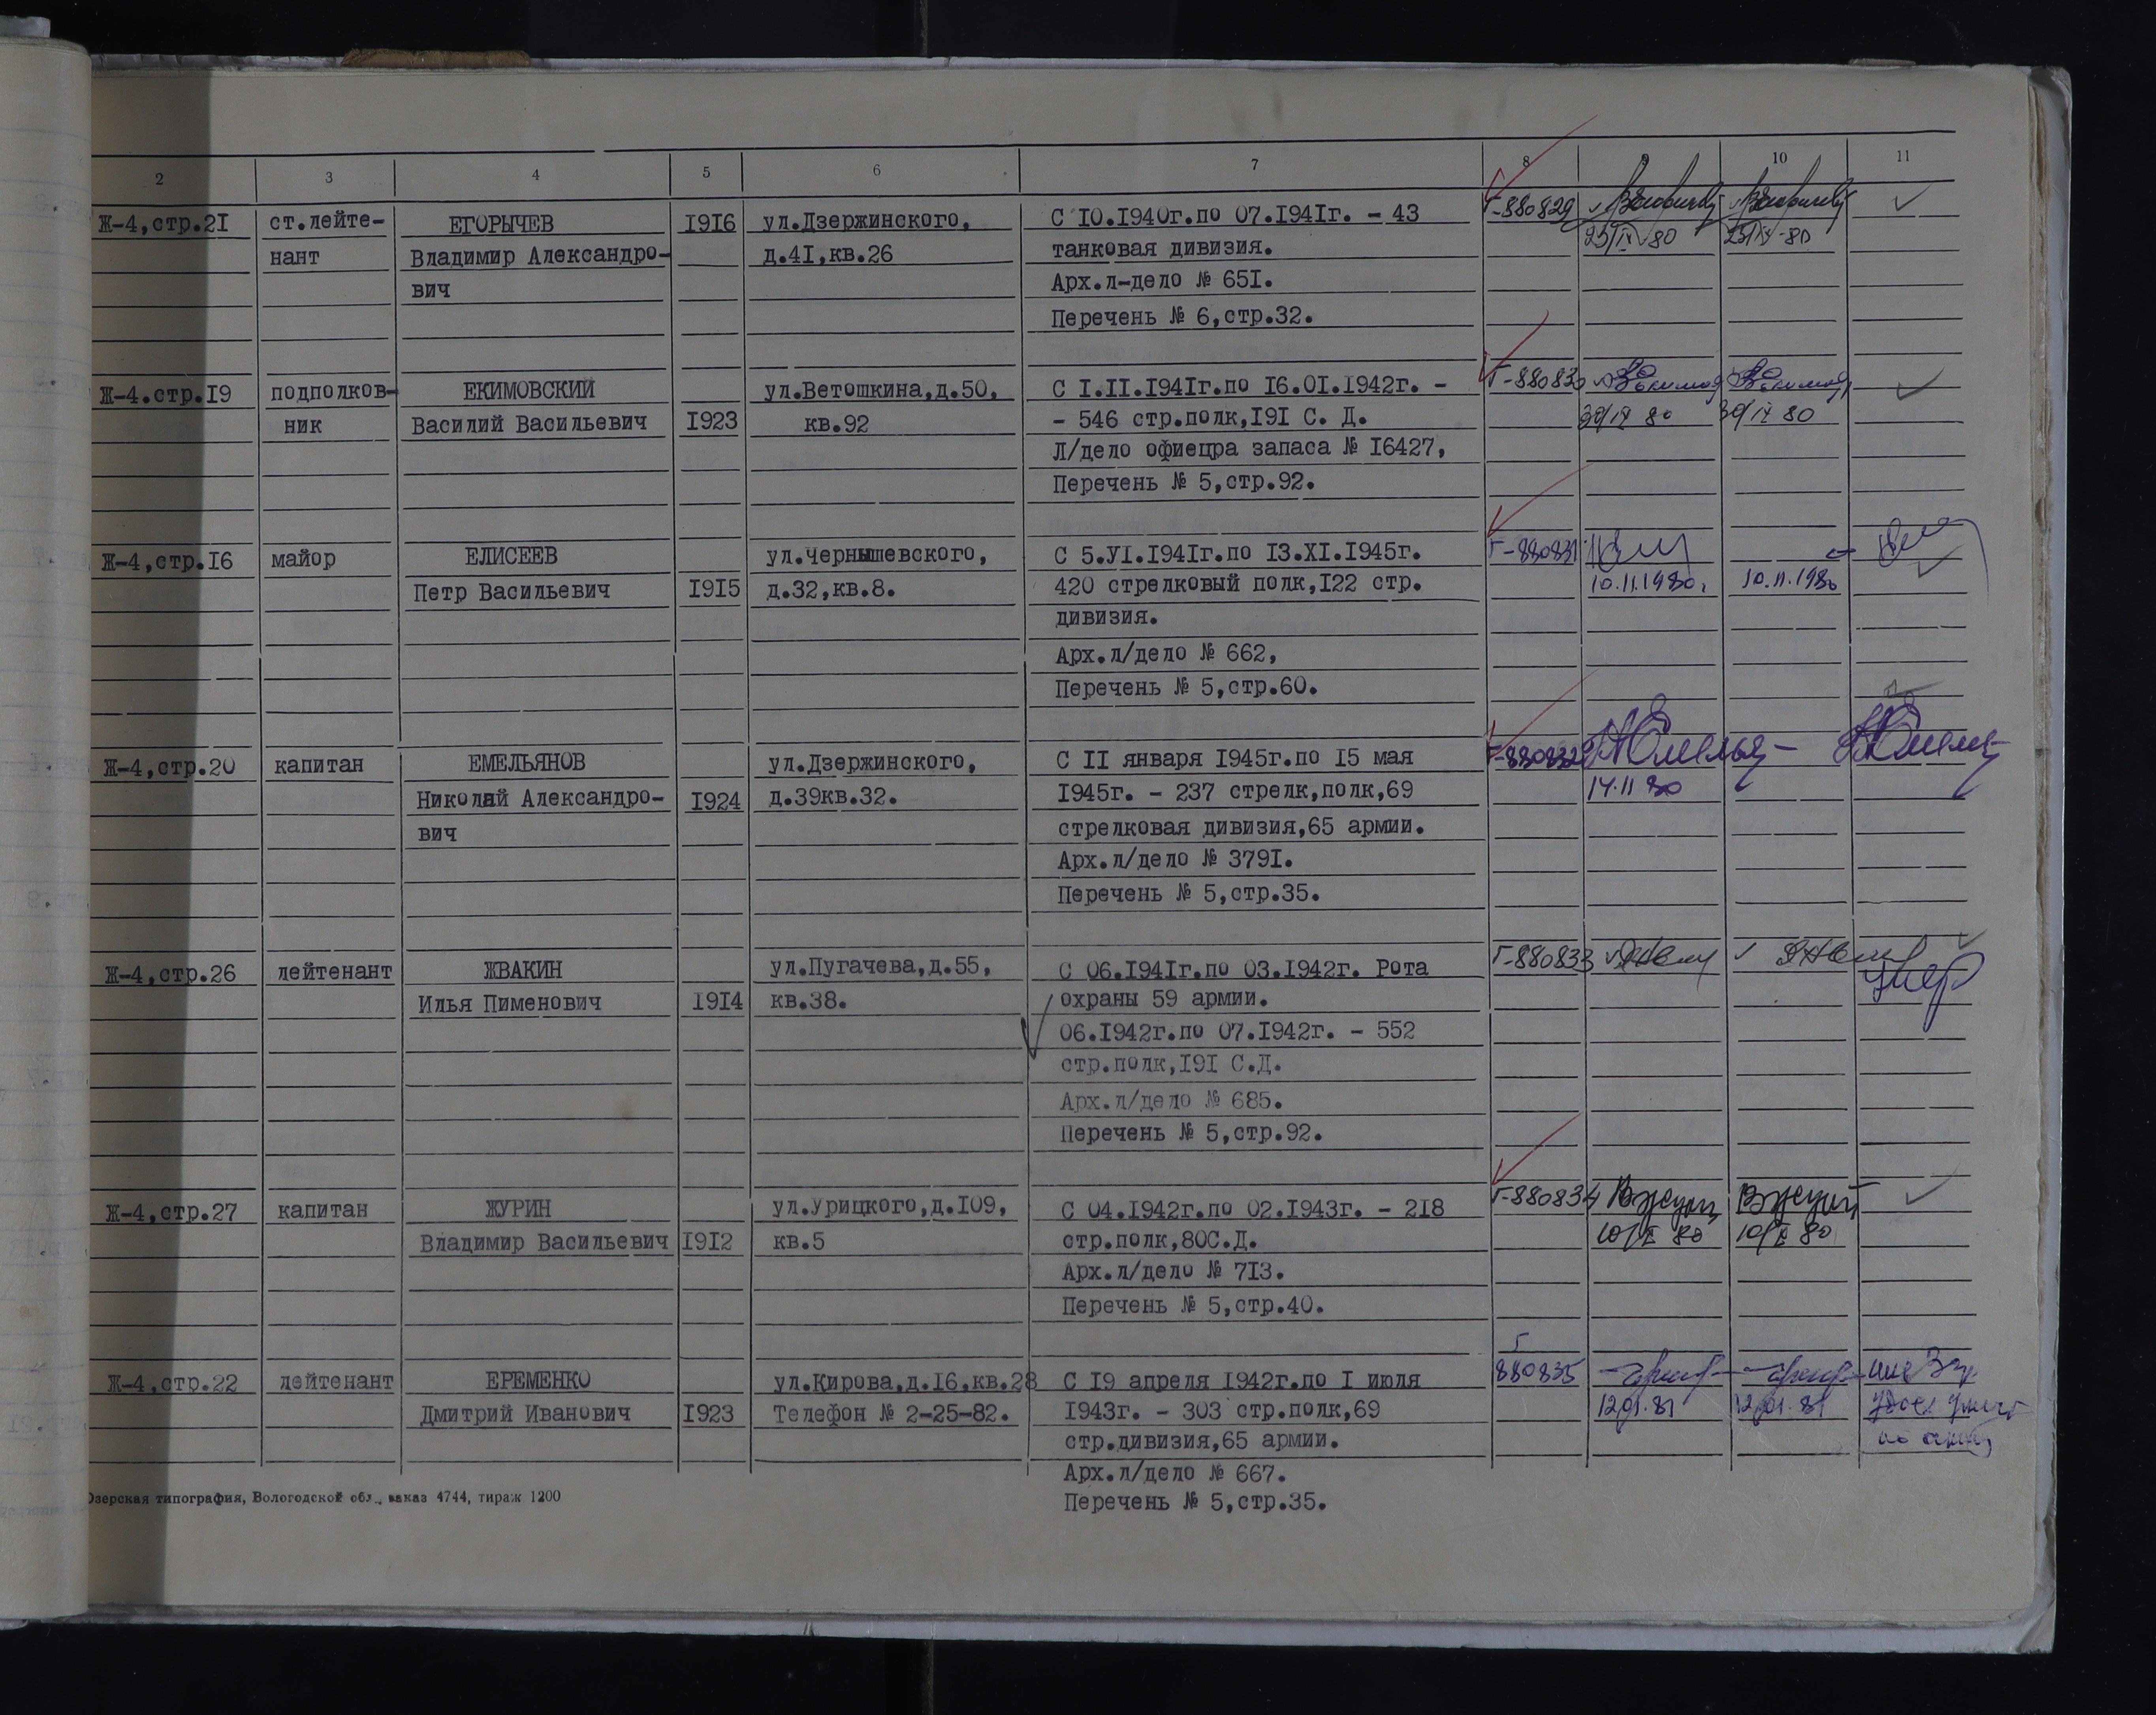 2 3 4 5 6 7 8 10 11
Ж-4,стр.2I ст.лейте- ЕГОРЫЧЕВ I9I6 ул.Дзержинского, С IO.I940г.по 07.I94Iг. - 43 Г-880829
нант Владимир Александро- д.4I,кв.26 танковая дивизия. 25/IX-80 25/IX-80
вич Арх.л-дело № 65I.
Перечень № 6,стр.32.
Ж-4.стр.I9 подполков- ЕКИМОВСКИЙ ул.Ветошкина,д.50, С I.II.I94Iг.по I6.OI.I942г. - Г-880830
ник Василий Васильевич I923 кв.92 - 546 стр.полк,I9I С. Д. 30/IX 80 30/IX 80
Л/дело офиецра запаса № I6427,
Перечень № 5,стр.92.
Ж-4,стр.I6 майор ЕЛИСЕЕВ ул.Чернышевского, С 5.УI.I94Iг.по I3.XI.I945г. Г-880831
Петр Васильевич I9I5 д.32,кв.8. 420 стрелковый полк,I22 стр. 10.11.1980. 10.11.1980
дивизия.
Арх.л/дело № 662,
Перечень № 5,стр.60.
Ж-4,стр.20 капитан ЕМЕЛЬЯНОВ ул.Дзержинского, С II января I945г.по I5 мая Г-880832
Николай Александро- I924 д.39кв.32. I945г. - 237 стрелк,полк,69 14.11 80
вич стрелковая дивизия,65 армии.
Арх.л/дело № 379I.
Перечень № 5,стр.35.
Ж-4,стр.26 лейтенант ЖВАКИН ул.Пугачева,д.55, С 06.I94Iг.по 03.I942г. Рота Г-880833
Илья Пименович I9I4 кв.38. охраны 59 армии. умер
06.I942г.по 07.I942г. - 552
стр.полк,I9I С.Д.
Арх.л/дело № 685.
Перечень № 5,стр.92.
Ж-4,стр.27 капитан ЖУРИН ул.Урицкого,д.I09, С 04.I942г.по 02.I943г. - 2I8 Г-880834
Владимир Васильевич I9I2 кв.5 стр.полк,80С.Д. 10/X 80 10/X 80
Арх.л/дело № 7I3.
Перечень № 5,стр.40.
Ж-4,стр.22 лейтенант ЕРЕМЕНКО ул.Кирова,д.I6,кв.28 С I9 апреля I942г.по I июля Г 880835
Дмитрий Иванович I923 Телефон № 2-25-82. I943г. - 303 стр.полк,69 12.01.81 12.01.81
стр.дивизия,65 армии.
Арх.л/дело № 667.
Перечень № 5,стр.35.
Озерская типография, Вологодской обл., заказ 4744, тираж 1200